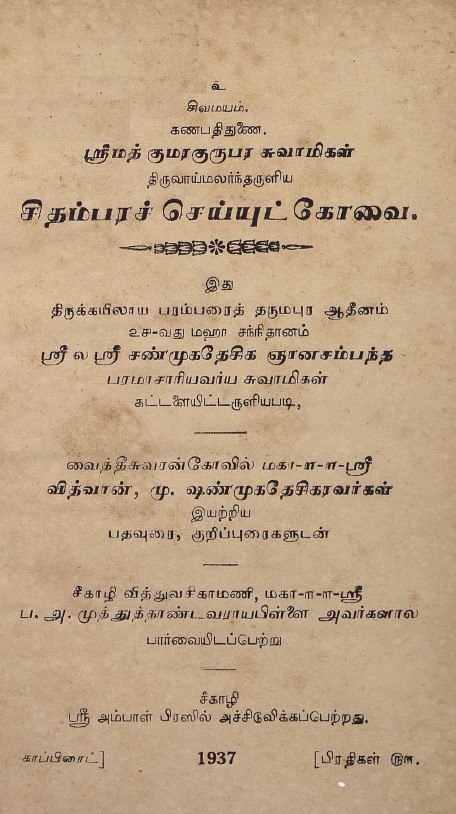 உ
சிவமயம்.
கணபதிதுணை.
ஸ்ரீமத் குமரகுருபர சுவாமிகள்
திருவாய்மலர்ந்தருளிய
சிதம்பரச் செய்யுட்கோவை.
இது
திருக்கயிலாய பரம்பரைத் தருமபுர ஆதீனம்
உச-வது மஹா சந்நிதானம்
ஸ்ரீ ல ஸ்ரீ சண்முகதேசிக ஞானசம்பந்த
பரமாசாரியவர்ய சுவாமிகள்
கட்டளையிட்டருளியபடி,
வைத்தீசுவரன்கோவில் மகா-௱-௱-ஸ்ரீ
வித்வான், மு. ஷண்முகதேசிகரவர்கள்
இயற்றிய
பதவுரை, குறிப்புரைகளுடன்
சீகாழி வித்துவசிகாமணி, மகா-௱-௱-ஸ்ரீ
ப. அ. முத்துத்தாண்டவராயபிள்ளை அவர்களால்
பார்வையிடப்பெற்று
சீகாழி
ஸ்ரீ அம்பாள் பிரஸில் அச்சிடுவிக்கப்பெற்றது.
காப்பிரைட்]
1937
[பிரதிகள் ௫௱.